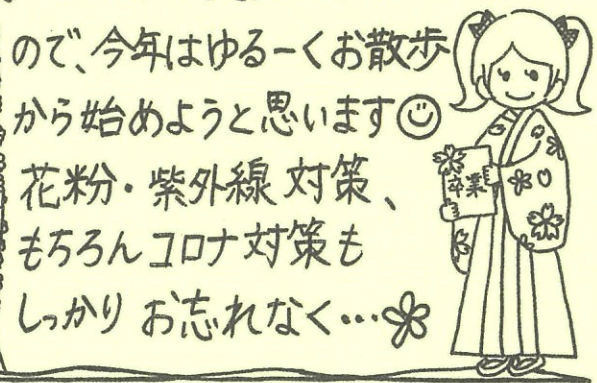 ので、今年はゆるーくお散歩
から始めようと思います
花粉・紫外線対策、
もちろんコロナ対策も
しっかりお忘れなく…
卒業